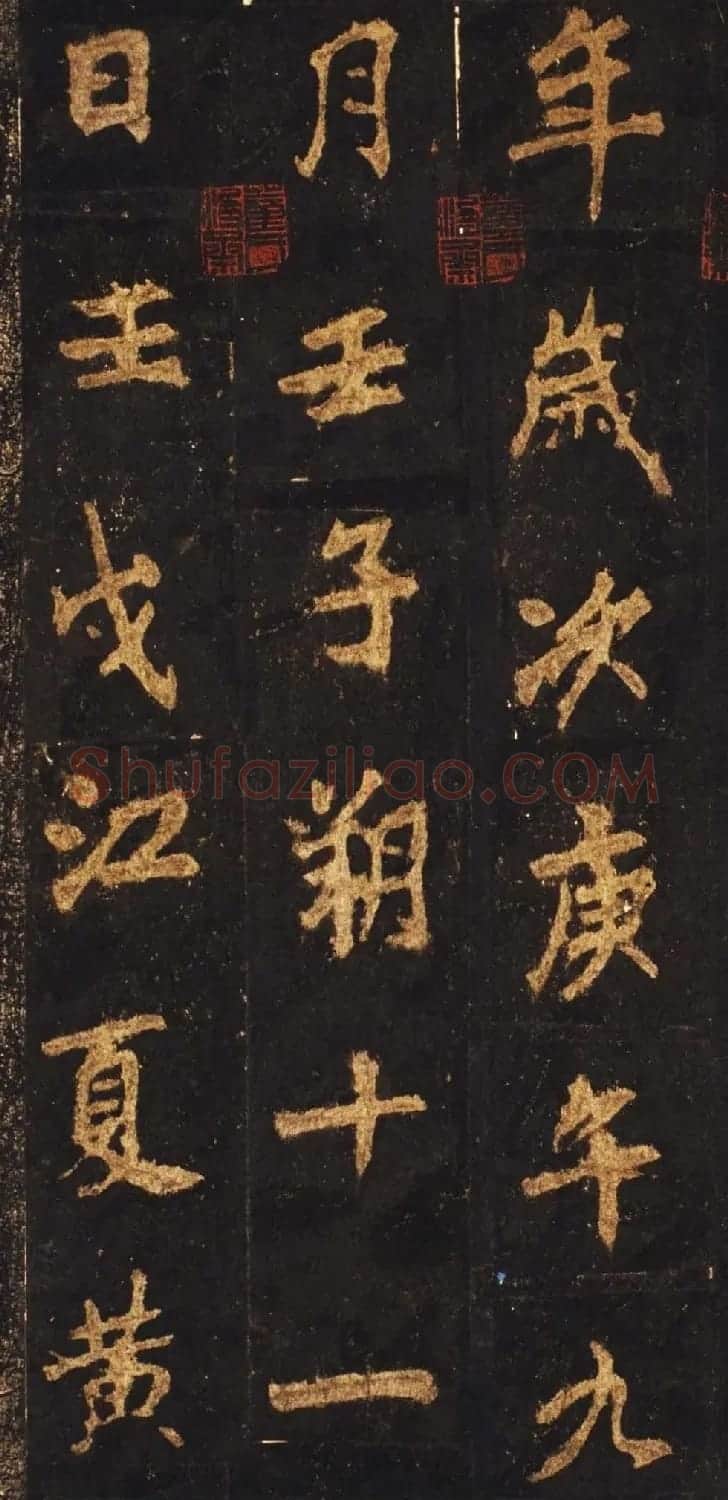 年歲次庚午九
月壬子朔十一
日壬戌江夏黃
Shufaziliao.COM